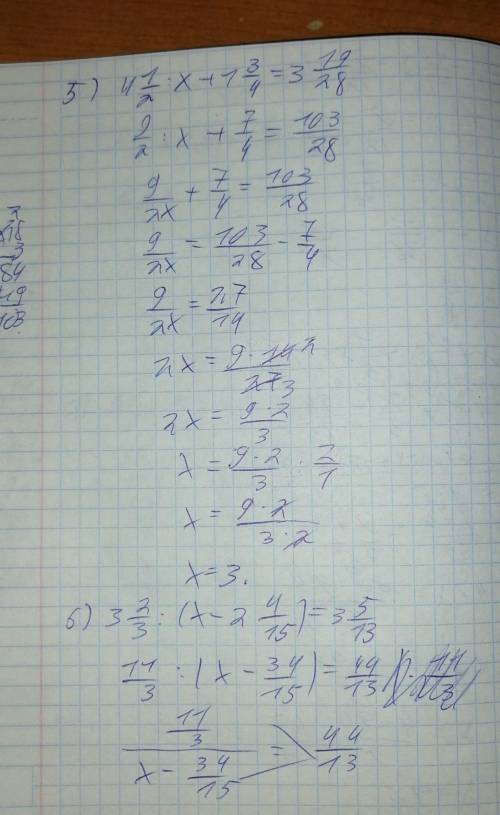 5) 4 1/2 : x + 1 3/4 = 3 19/28
9/2 : x + 7/4 = 103/28
9/2x + 7/4 = 103/28
9/2x = 103/28 - 7/4
9/2x = 27/14
2x = 9·14 2/27 3
2x = 9·2/3
x = 9·2/3 · 2/1
x = 9·2/3·2
x = 3.
6) 3 2/3 : (x - 2 4/15) = 3 5/13
11/3 : (x - 34/15) = 44/13
11/3 / x - 34/15 = 44/13
2
28
3
84
19
103